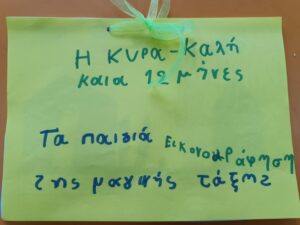 Η ΚΥΡΑ-ΚΑΛΗ
ΚΑΙ ΟΙ 12 ΜΗΝΕΣ
Τα παιδιά εικονογράφηση
της μαγικής τάξης